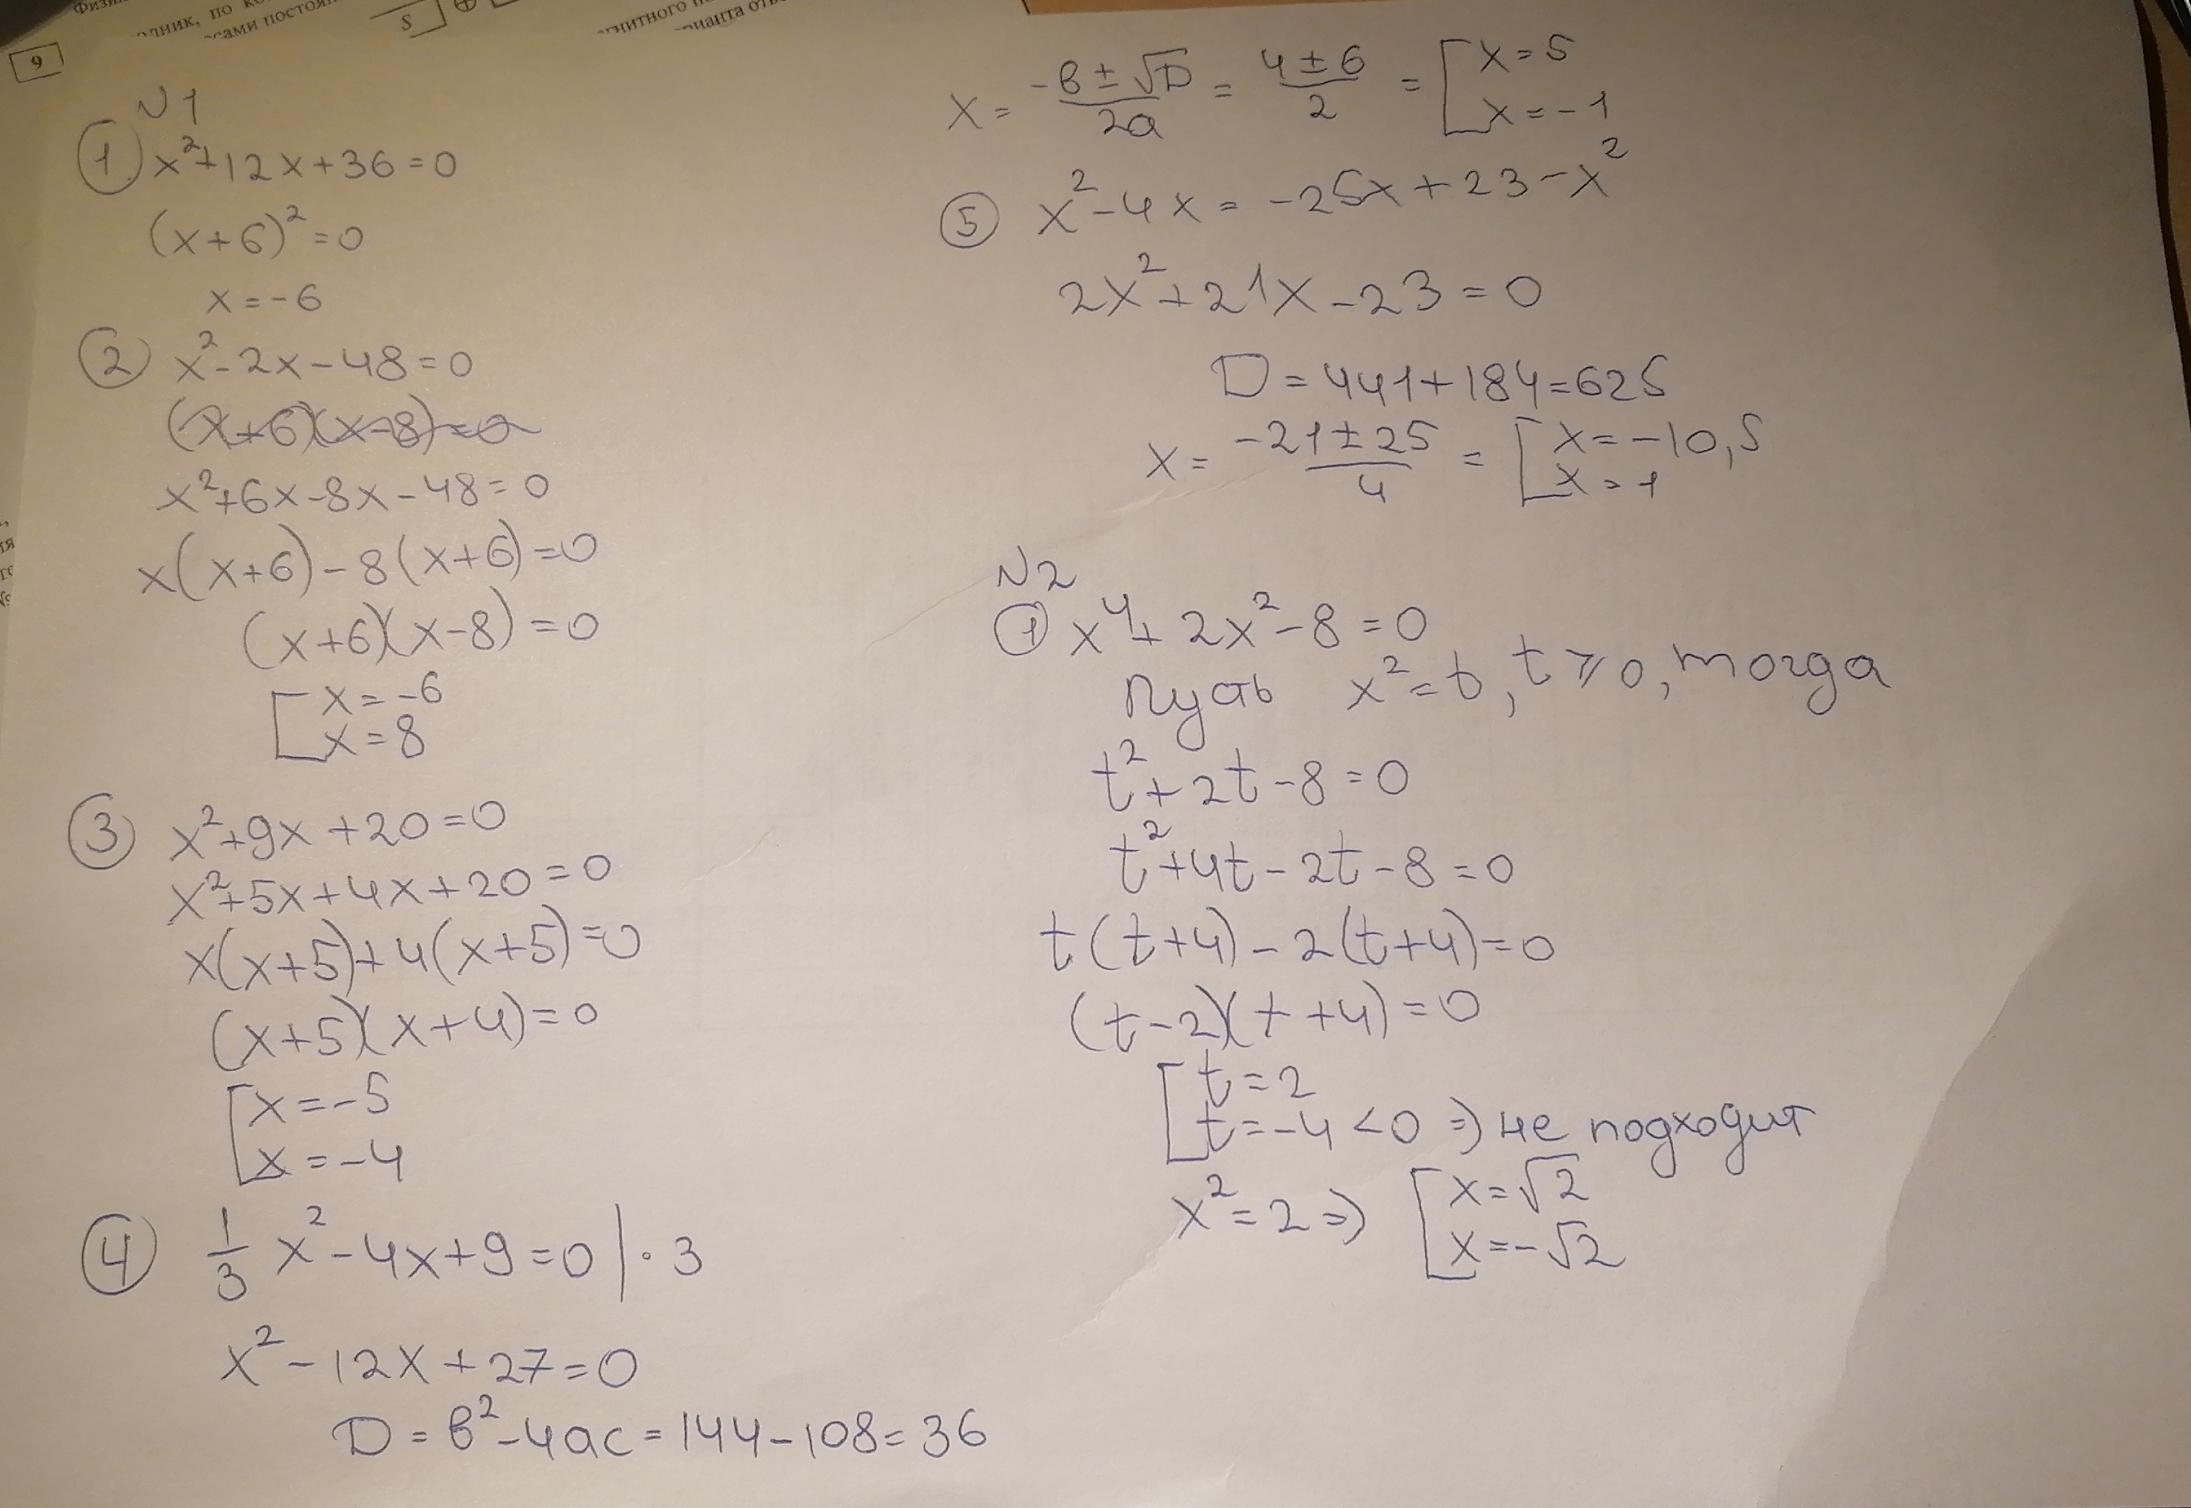 9
N1
① x²+12x+36=0
(x+6)²=0
x=-6
② x²-2x-48=0
(x+6)(x-8)=0
x²+6x-8x-48=0
x(x+6)-8(x+6)=0
(x+6)(x-8)=0
[x=-6
x=8
③ x²+9x+20=0
x²+5x+4x+20=0
x(x+5)+4(x+5)=0
(x+5)(x+4)=0
[x=-5
x=-4
④ 1/3 x²-4x+9=0|·3
x²-12x+27=0
D=b²-4ac=144-108=36
x=(-b±√D)/2a=(4±6)/2=[x=5
x=-1
⑤ x²-4x=-25x+23-x²
2x²+21x-23=0
D=441+184=625
x=(-21±25)/4=[x=-10,5
x=1
N2
① x⁴+2x²-8=0
Пусть x²=t, t≥0, тогда
t²+2t-8=0
t²+4t-2t-8=0
t(t+4)-2(t+4)=0
(t-2)(t+4)=0
[t=2
t=-4<0 => не подходит
x²=2=> [x=√2
x=-√2